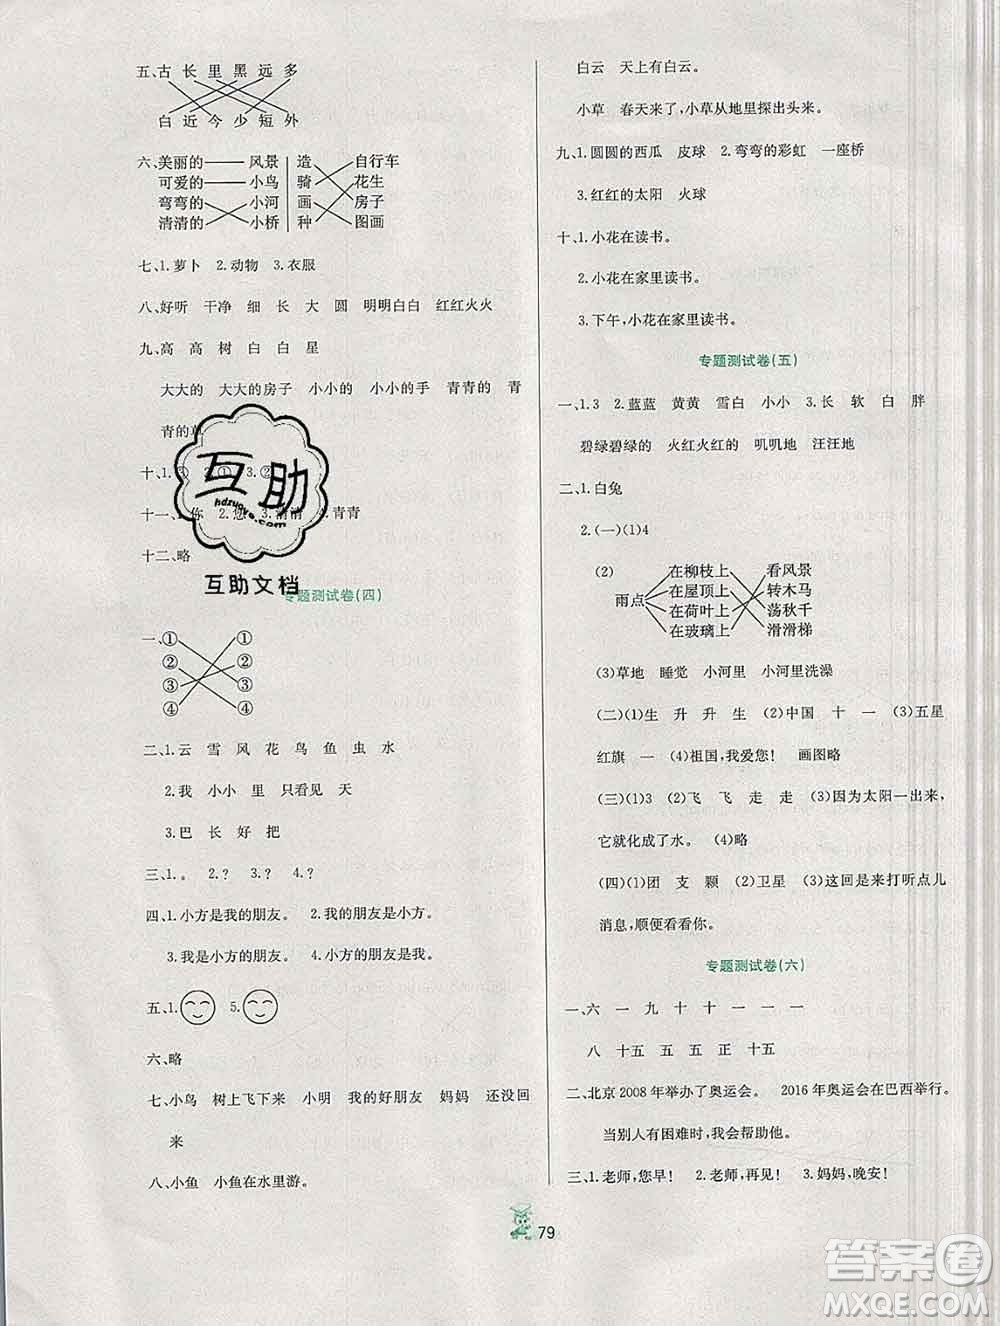 五、古 长 里 黑 远 多
白 近 今 少 短 外
六、美丽的 风景 造 自行车
可爱的 小鸟 骑 花生
弯弯的 小河 画 房子
清清的 小桥 种 图画
七、1.萝卜 2.动物 3.衣服
八、好听 干净 细 长 大 圆 明明白白 红红火火
九、高 高 树 白 白 星
大大的 大大的房子 小小的 小小的手 青青的 青
青的草
十、1.③ 2.① 3.②
十一、1.你 2.您 3.清清 4.青青
十二、略
专题测试卷(四)
一、① ①
② ②
③ ③
④ ④
二、1.云 雪 风 花 鸟 鱼 虫 水
2.我 小小 里 只看见 天
3.巴 长 好 把
三、1.。 2.? 3.? 4.?
四、1.小方是我的朋友。 2.我的朋友是小方。
3.我是小方的朋友。 4.小方的朋友是我。
五、1. 5.
六、略
七、小鸟 树上飞下来 小明 我的好朋友 妈妈 还没回
来
八、小鱼 小鱼在水里游。
白云 天上有白云。
小草 春天来了,小草从地里探出头来。
九、1.圆圆的西瓜 皮球 2.弯弯的彩虹 一座桥
3.红红的太阳 火球
十、1.小花在读书。
2.小花在家里读书。
3.下午,小花在家里读书。
专题测试卷(五)
一、1.3 2.蓝蓝 黄黄 雪白 小小 3.长 软 白 胖
碧绿碧绿的 火红火红的 叽叽地 汪汪地
二、1.白兔
2.(一)(1)4
(2) 雨点
在柳枝上 看风景
在屋顶上 转木马
在荷叶上 荡秋千
在玻璃上 滑滑梯
(3)草地 睡觉 小河里 小河里洗澡
(二)(1)生 升 升 生 (2)中国 十 一 (3)五星
红旗 一 (4)祖国,我爱您! 画图略
(三)(1)3 (2)飞 飞 走 走 (3)因为太阳一出来,
它就化成了水。 (4)略
(四)(1)团 支 颗 (2)卫星 (3)这回是来打听点儿
消息,顺便看看你。
专题测试卷(六)
一、六 一 九 十 十 一 一 一
八 十五 五 五 正 十五
二、北京 2008 年举办了奥运会。 2016 年奥运会在巴西举行。
当别人有困难时,我会帮助他。
三、1.老师,您早! 2.老师,再见! 3.妈妈,晚安!
79
互助
hdzuoye.com
互助文档
答案圈
MXQE.COM